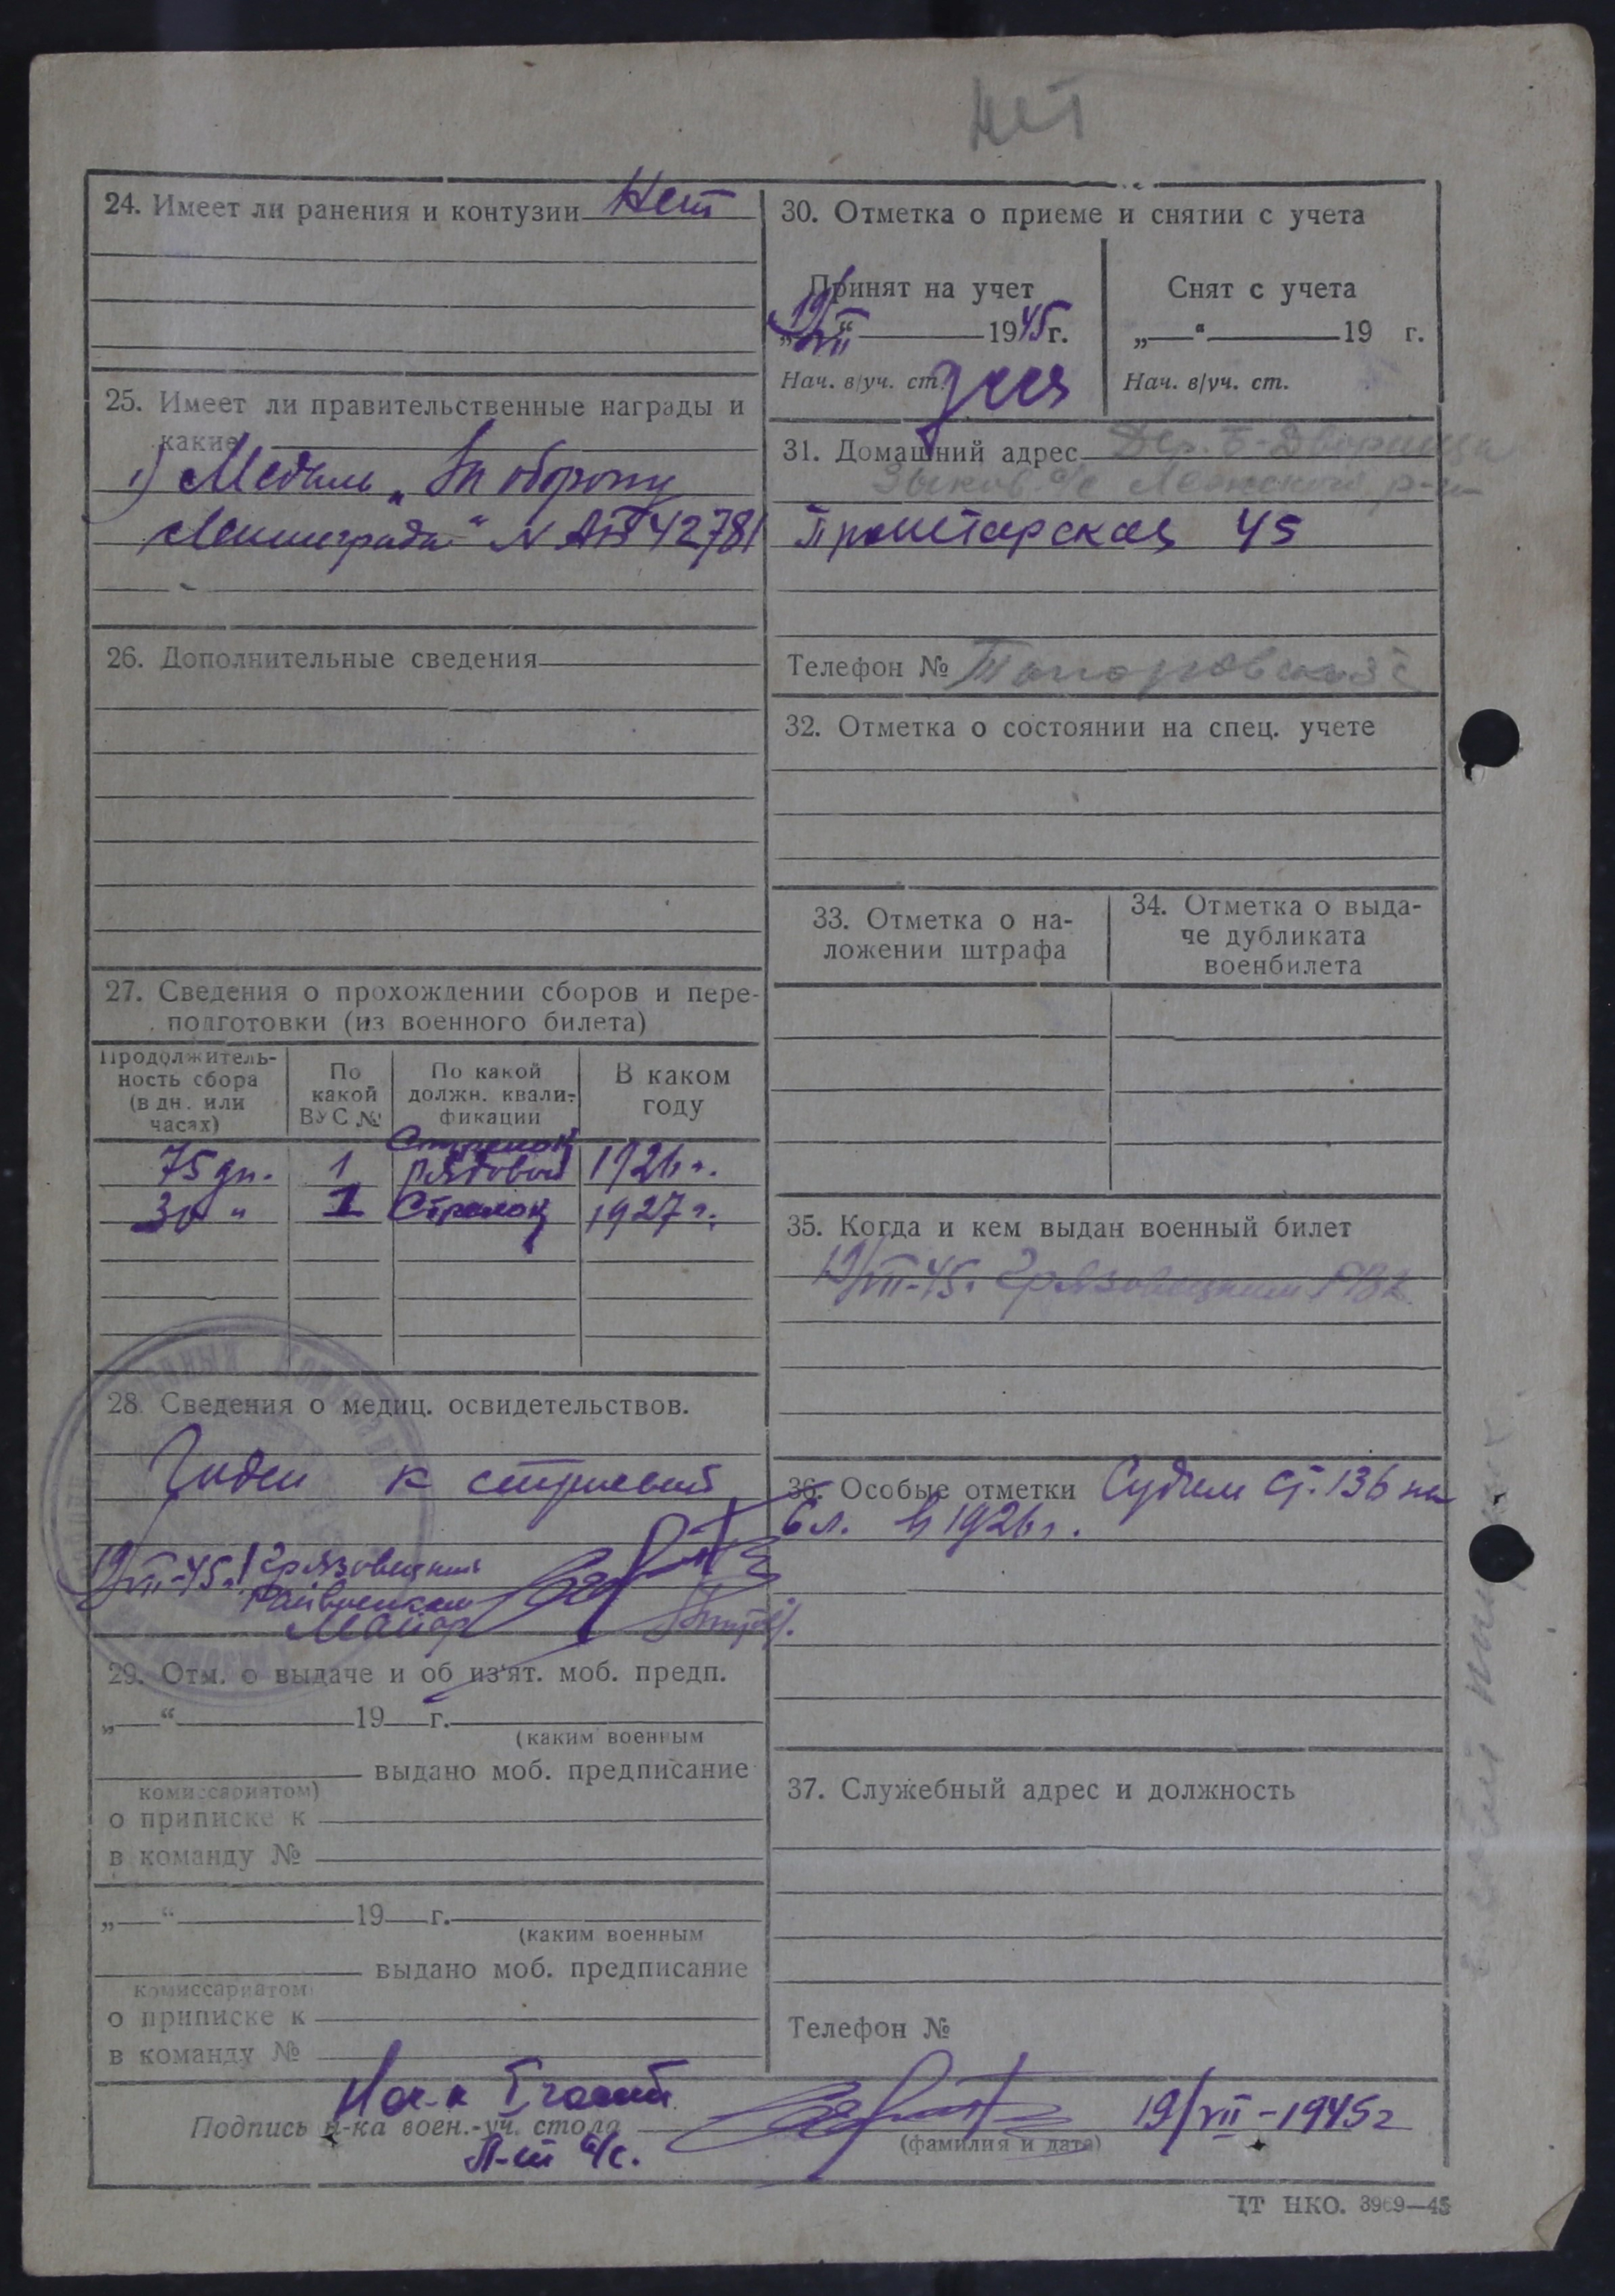 нет
24. Имеет ли ранения и контузии Нет
25. Имеет ли правительственные награды и
какие
1) Медаль „За оборону
Ленинграда“ N АБ 42781
26. Дополнительные сведения
27. Сведения о прохождении сборов и пере-
подготовки (из военного билета)
Продолжитель-
ность сбора
(в дн. или
часах)
По
какой
ВУС №
По какой
должн. квали-
фикации
В каком
году
Стрелок
75 дн. 1 рядовой 1926 г.
30 " 1 Стрелок 1927 г.
28. Сведения о медиц. освидетельствов.
Годен к строевой
19/VII-45г. Грязовецкий
Райвоенком
Майор
29. Отм. о выдаче и об из'ят. моб. предп.
„—“ 19 г.
(каким военным
выдано моб. предписание
комиссариатом)
о приписке к
в команду №
„—“ 19 г.
(каким военным
выдано моб. предписание
комиссариатом)
о приписке к
в команду №
30. Отметка о приеме и снятии с учета
Принят на учет
„19“ VII 1945 г.
Нач. в/уч. ст.
Снят с учета
„—“ 19 г.
Нач. в/уч. ст.
31. Домашний адрес Дер. Б-Дворища
Зыков. с/с Лежского р-н
Пролетарская 45
Телефон №
32. Отметка о состоянии на спец. учете
33. Отметка о на-
ложении штрафа
34. Отметка о выда-
че дубликата
военбилета
35. Когда и кем выдан военный билет
19/VII-45. Грязовецким РВК
36. Особые отметки Судим ст. 136 на
6 л. в 1926 г.
37. Служебный адрес и должность
Телефон №
Нач-к I части
Подпись н-ка воен.-уч. стола
Л-т а/с.
19/VII-1945г
(фамилия и дата)
ЦТ НКО. 3969—45